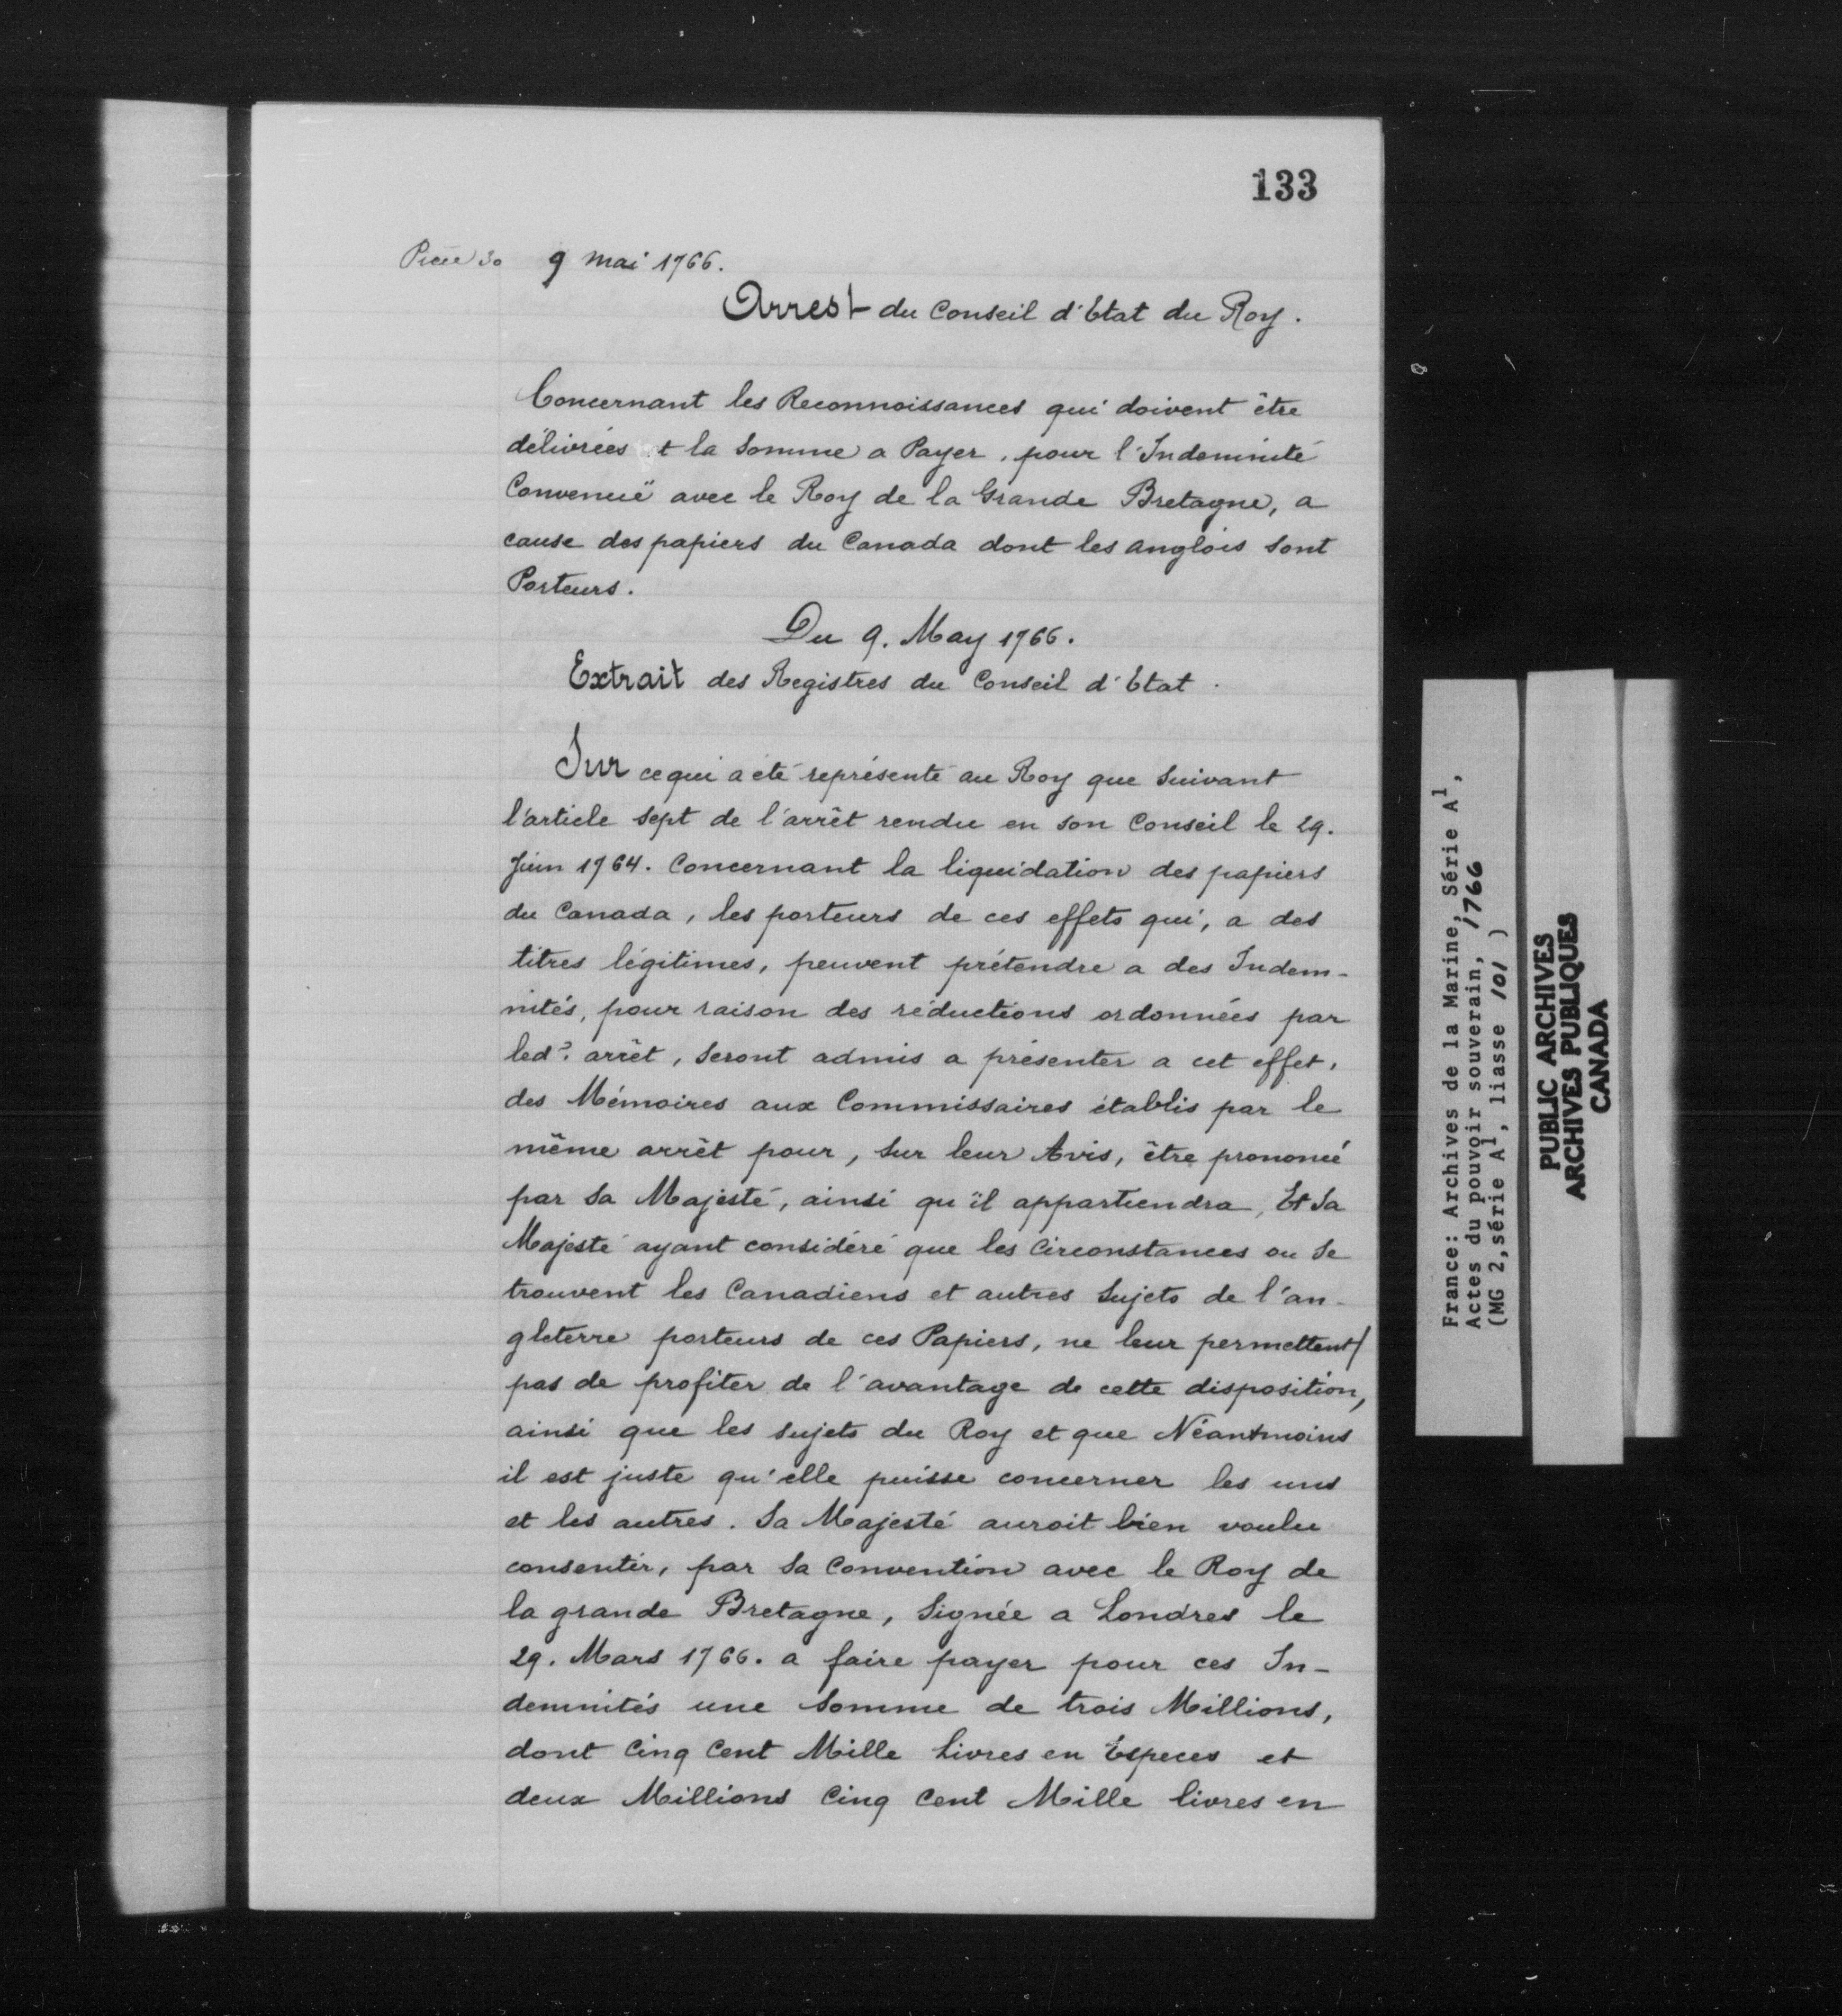 133
Pièce 30 9 mai 1766.
Arrest du Conseil d'Etat du Roy.
Concernant les Reconnoissances qui doivent être
délivrées et la Somme a Payer, pour l'Indemnité
Convenuë avec le Roy de la Grande Bretagne, a
cause des papiers du Canada dont les anglois sont
Porteurs.
Du 9. May 1766.
Extrait des Registres du Conseil d'Etat.
Sur ce qui a été représenté au Roy que Suivant
l'article Sept de l'arrêt rendu en son Conseil le 29.
Juin 1764. Concernant la liquidation des papiers
du Canada, les porteurs de ces effets qui, a des
titres légitimes, peuvent prétendre a des Indem-
nités, pour raison des réductions ordonnées par
led. arrêt, Seront admis a présenter a cet effet,
des Mémoires aux Commissaires établis par le
même arrêt pour, Sur leur Avis, être prononcé
par Sa Majesté, ainsi qu'il appartiendra, Et Sa
Majesté ayant considéré que les Circonstances ou Se
trouvent les Canadiens et autres Sujets de l'an-
gleterre porteurs de ces Papiers, ne leur permettent
pas de profiter de l'avantage de cette disposition,
ainsi que les Sujets du Roy et que Néantmoins
il est juste qu'elle puisse concerner les uns
et les autres. Sa Majesté auroit bien voulu
consentir, par Sa Convention avec le Roy de
la grande Bretagne, Signée a Londres le
29. Mars 1766. a faire payer pour ces In-
demnités une Somme de trois Millions,
dont Cinq Cent Mille Livres en Especes et
deux Millions Cinq Cent Mille livres en
France: Archives de la Marine, Série A1,
Actes du pouvoir souverain, 1766
(MG 2,série A1, liasse 101 )
PUBLIC ARCHIVES
ARCHIVES PUBLIQUES
CANADA